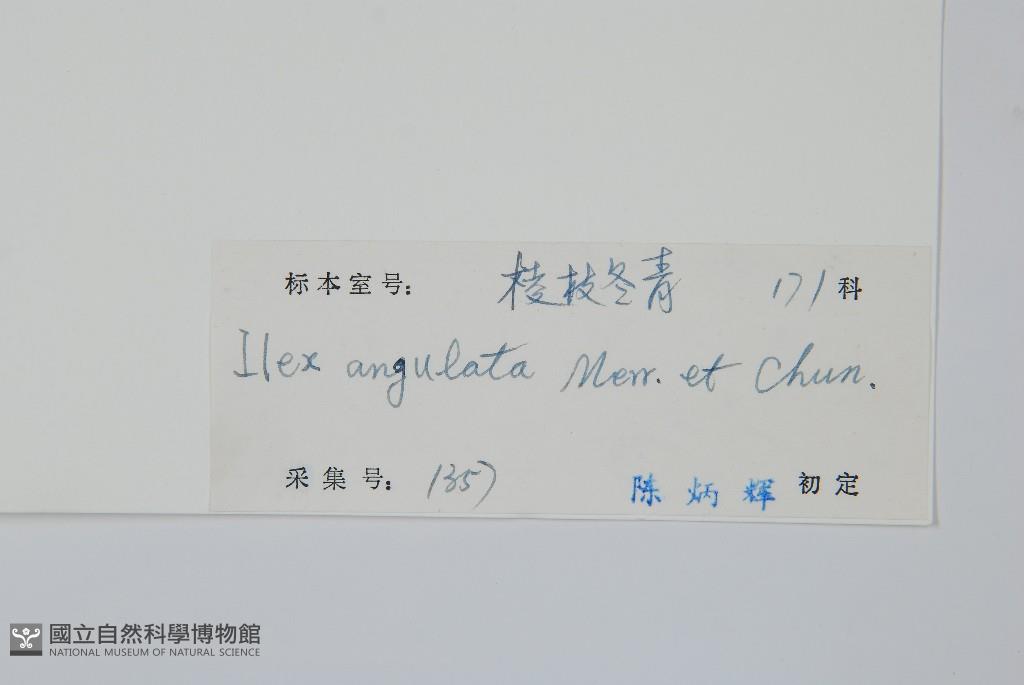 标本室号： 棱枝冬青 171科
Ilex angulata Merr. et Chun.
采集号： 1357 陈炳辉 初定
國立自然科學博物館
NATIONAL MUSEUM OF NATURAL SCIENCE